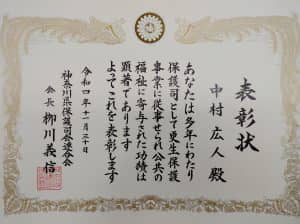 表彰状
中村広人殿
あなたは多年にわたり
保護司として更生保護
事業に従事せられ公共の
福祉に寄与された功績は
顕著であります
よってこれを表彰します
令和四年十一月三十日
神奈川県保護司会連合会
会長 柳川義信